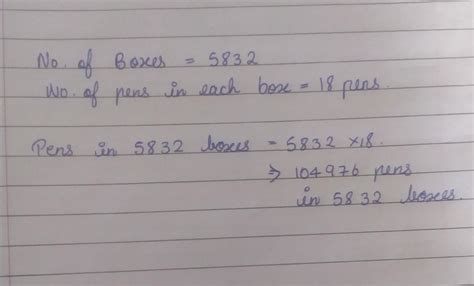 No. of Boxes = 5832
No. of pens in each box = 18 pens.
Pens in 5832 boxes = 5832 ×18.
⇒ 104976 pens
in 5832 boxes.